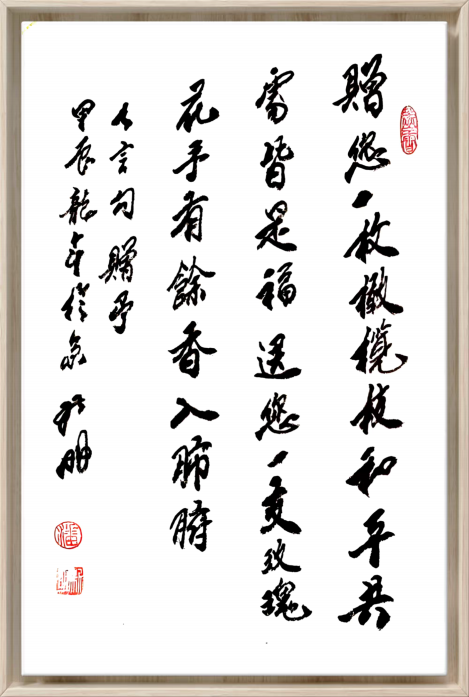 贈您一枚橄欖枝和平共
需皆是福送您一支玫瑰
花手有餘香入肺腑
言句贈予
甲辰龍年